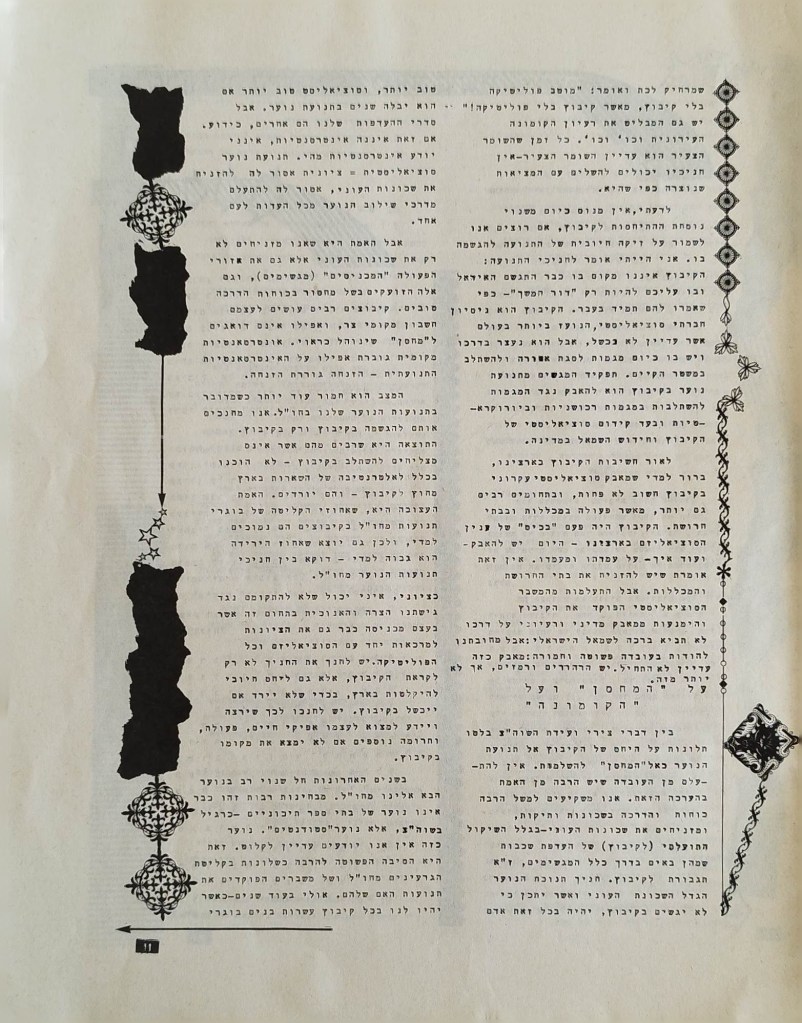 שמרחיק לכת ואומר: "מוטב פוליטיקה
בלי קיבוץ, מאשר קיבוץ בלי פוליטיקה!"
יש גם המבליט את רעיון הקומונה
העירונית וכו' וכו'. כל זמן שהשומר
הצעיר הוא עדיין השומר הצעיר-אין
חניכיו יכולים להשלים עם המציאות
שנוצרה כפי שהיא.
לדעתי, אין מנוס כיום משנוי
נוסחת ההתיחסות לקיבוץ, אם רוצים אנו
לשמור על זיקה חיובית של התנועה להגשמה
בו. אני הייתי אומר לחניכי התנועה:
הקיבוץ איננו מקום בו כבר התגשם האידאל
ובו עליכם להיות רק "דור המשך"- כפי
שאמרו להם תמיד בעבר. הקיבוץ הוא ניסיון
חברתי סוציאליסטי, הנועז ביותר בעולם
אשר עדיין לא נכשל, אבל הוא נעצר בדרכו
ויש בו כיום מגמות לסגת אחורה ולהשתלב
במשטר הקיים. תפקיד המגשים מתנועת
נוער בקיבוץ הוא להאבק נגד המגמות
להשתלבות במגמות רכושניות וביורוקרא-
-טיות ובעד קידום סוציאליסטי של
הקיבוץ וחידוש השמאל במדינה.
לאור חשיבות הקיבוץ בארצינו,
ברור למדי שמאבק סוציאליסטי עקרוני
בקיבוץ חשוב לא פחות, ובתחומים רבים
גם יותר, מאשר פעולה במכללות ובבתי
חרושת. הקיבוץ היה פעם "בכיס" של ענין
הסוציאליזם בארצינו - היום יש להאבק-
ועוד איך- על עמדהו ומעמדו. אין זאת
אומרת שיש להזניח את בתי החרושת
והמכללות. אבל התעלמות מהמשבר
הסוציאליסטי הפוקד את הקיבוץ
והימנעות ממאבק מדיני ורעיוני על דרכו
לא תביא ברכה לשמאל הישראלי:אבל מחובתנו
להודות בעובדה פשוטה וחמורה:מאבק כזה
עדיין לא התחיל.יש הרהורים ורמזים, אך לא
יותר מזה.
על "המחסן" ועל
"הקומונה"
בין דברי צירי ועידת השוה"צ בלטו
תלונות על היחס של הקיבוץ אל תנועת
הנוער כאל"מחסן" להשלמות. אין להת-
-עלם מן העובדה שיש הרבה מן האמת
בהערכה הזאת. אנו משקיעים למשל הרבה
כוחות והדרכה בשכונות ותיקות,
ומזניחים את שכונות העוני-בגלל השיקול
התועלתי (לקיבוץ) של העדפת שכבות
שמהן באים בדרך כלל המגשימים, ז"א
תגבורת לקיבוץ. חניך תנועת הנוער
הגדל השכונת העוני ואשר יתכן כי
לא יגשים בקיבוץ, יהיה בכל זאת אדם
טוב יותר, וסוציאליסט טוב יותר אם
הוא יבלה שנים בתנועת נוער. אבל
סדרי ההעדפות שלנו הם אחרים, כידוע.
אם זאת איננה אינטרסנטיות, אינני
יודע אינטרסנטיות מהי. תנועת נוער
סוציאליסטית = ציונית אסור לה להזניח
את שכונות העוני, אסור לה להתעלם
מדרכי שילוב הנוער מכל העדות לעם
אחד.
אבל האמת היא שאנו מזניחים לא
רק את שכונות העוני אלא גם את אזורי
הפעולה "המכניסים" (מגשימים), וגם
אלה הזועקים בשל מחסור בכוחות הדרכה
טובים. קיבוצים רבים עושים לעצמם
חשבון מקומי צר, ואפילו אינם דואגים
ל"מחסן" שינוהל כראוי. אינטרסאנטיות
מקומית גוברת אפילו על האינטרסאנטיות
התנועתית - הזנחה גוררת הזנחה.
המצב הוא חמור עוד יותר כשמדובר
בתנועות הנוער שלנו בחו"ל. אנו מחנכים
אותם להגשמה בקיבוץ ורק בקיבוץ.
התוצאה היא שרבים מהם אשר אינם
מצליחים להשתלב בקיבוץ - לא הוכנו
בכלל לאלטרנטיבה של השארות בארץ
מחוץ לקיבוץ - והם יורדים. האמת
העצובה היא, שאחוזי הקליטה של בוגרי
תנועות מחו"ל בקיבוצים הם נמוכים
למדי, ולכן גם יוצא שאחוז הירידה
הוא גבוה למדי - דוקא בין חניכי
תנועות הנוער מחו"ל.
כציוני, איני יכול שלא להתקומם נגד
גישתנו הצרה והאנוכית בתחום זה אשר
בעצם מכניסה כבר גם את הציונות
למרכאות יחד עם הסוציאליזם וכל
הפוליטיקה.יש לחנך את החניך לא רק
לקראת הקיבוץ, אלא גם ליחס חיובי
להיקלטות בארץ, בכדי שלא יירד אם
ייכשל בקיבוץ. יש לחנכו לכך שירצה
ויידע למצוא לעצמו אפיקי חיים, פעולה,
וחרומה נוספים אם לא ימצא את מקומו
בקיבוץ.
בשנים האחרונות חל שנוי רב בנוער
הבא אלינו מחו"ל. מבחינות רבות זהו כבר
אינו נוער של בתי ספר תיכוניים -כרגיל
בשוה"צ, אלא נוער"סטודנטים". נוער
כזה אין אנו יודעים עדיין לקלוט. זאת
היא הסיבה הפשוטה להרבה כשלונות בקליטת
הגרעינים מחו"ל ושל משברים הפוקדים את
תנועות האם שלהם. אולי בעוד שנים-כאשר
יהיו לנו בכל קיבוץ עשרות בנים בוגרי
11